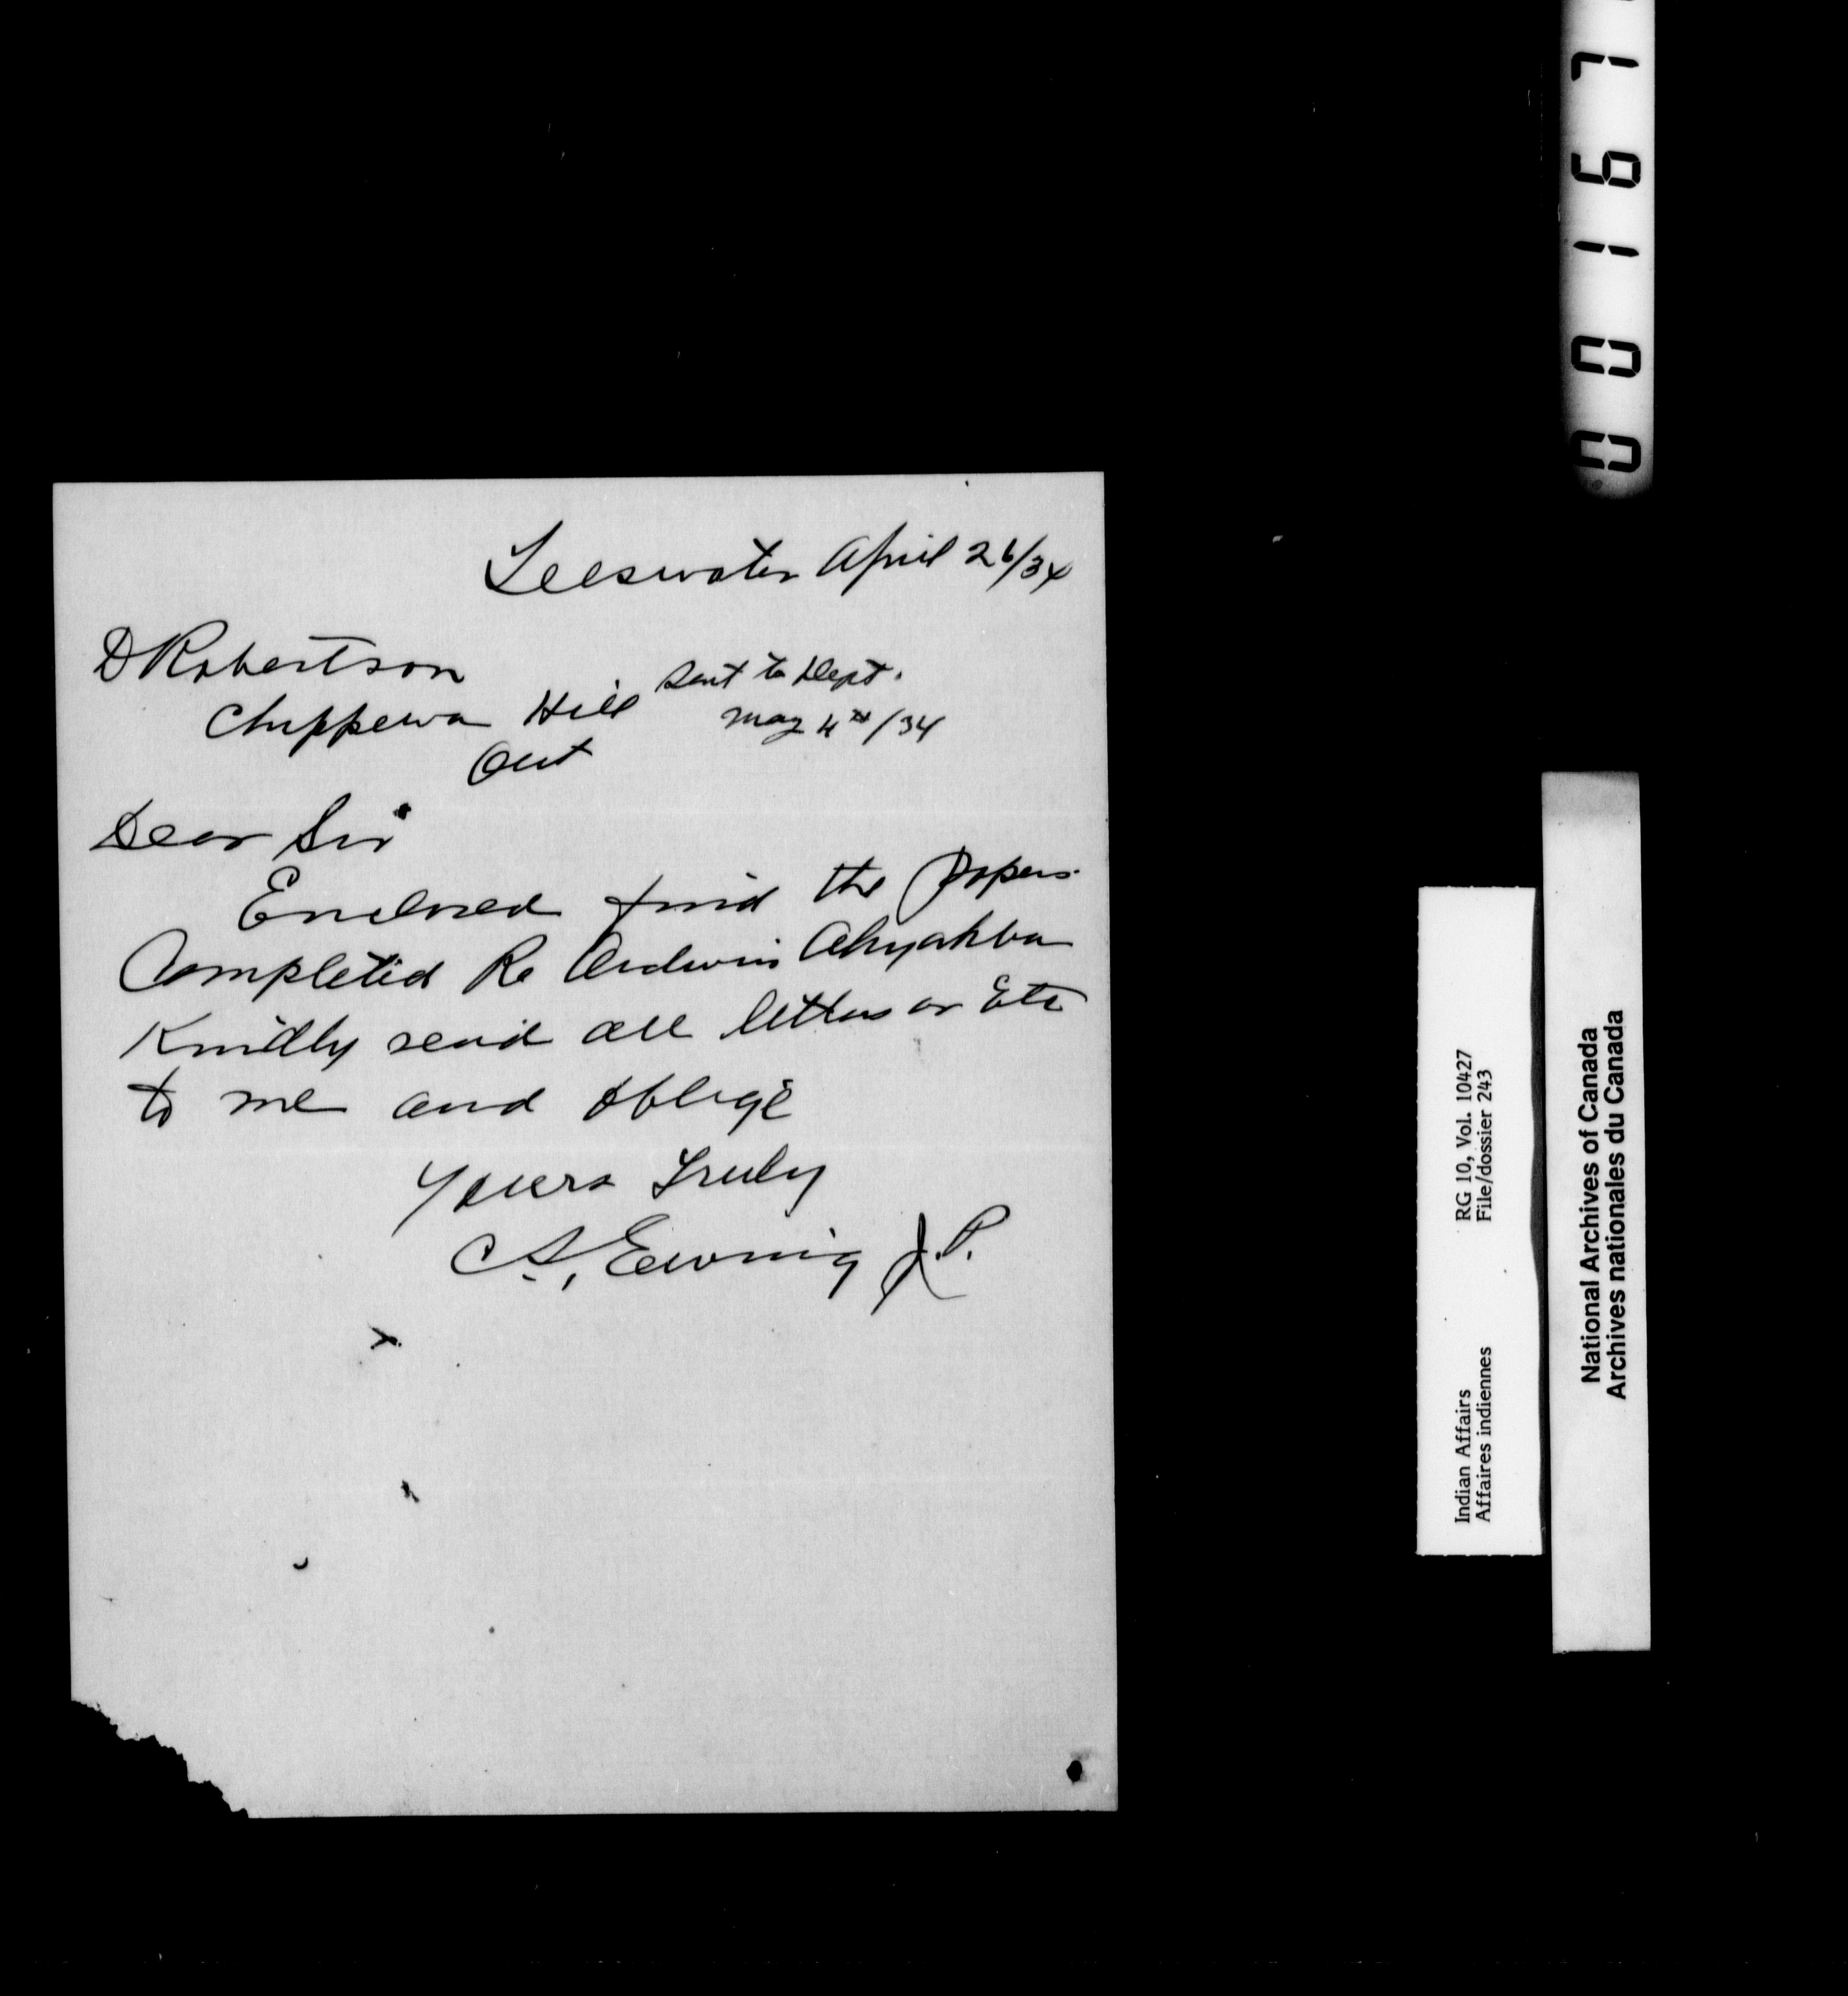 Teeswater April 26/34
D Robertson
Chippewa Hill
Ont
Sent to Dept.
May 4th/34
Dear Sir
Enclosed find the papers
Completed Re Ahyahba
Kindly send all letters or Etc
to me and oblige
Yours Truly
A. Ewing J.P.
00167
RG 10, Vol. 10427
File/dossier 243
Indian Affairs
Affaires indiennes
National Archives of Canada
Archives nationales du Canada